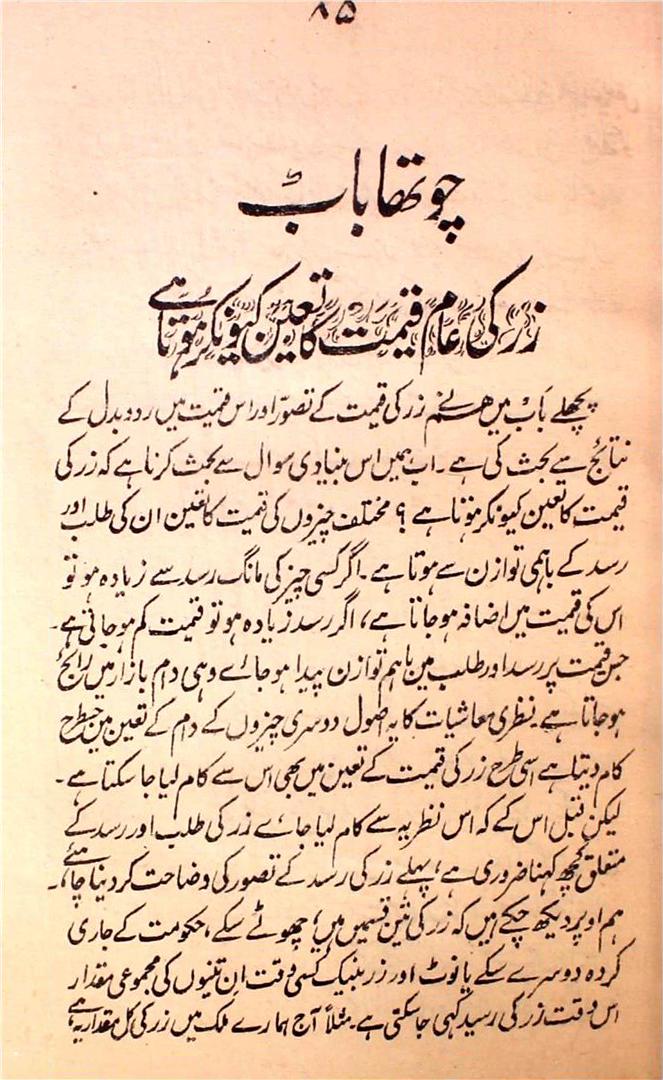 ۸۵
چوتھا باب
زر کی عام قیمت کا تعین کیونکر ہوتا ہے
پچھلے باب میں ہم نے زر کی قیمت کے تصوّر اور اس قیمت میں ردوبدل کے
نتائج سے بحث کی ہے۔ اب ہمیں اس بنیادی سوال سے بحث کرنا ہے کہ زر کی
قیمت کا تعین کیونکر ہوتا ہے؟ مختلف چیزوں کی قیمت کا تعین ان کی طلب اور
رسد کے باہمی توازن سے ہوتا ہے۔ اگر کسی چیز کی مانگ رسد سے زیادہ ہو تو
اس کی قیمت میں اضافہ ہو جاتا ہے، اگر رسد زیادہ ہو تو قیمت کم ہو جاتی ہے۔
جس قیمت پر رسد اور طلب میں باہم توازن پیدا ہو جاے وہی دام بازار میں رائج
ہو جاتا ہے۔ نظری معاشیات کا یہ اصول دوسری چیزوں کے دام کے تعین میں جسطرح
کام دیتا ہے اسی طرح زر کی قیمت کے تعین میں بھی اس سے کام لیا جا سکتا ہے۔
لیکن قبل اس کے کہ اس نظریہ سے کام لیا جاے زر کی طلب اور رسد کے
متعلق کچھ کہنا ضروری ہے، پہلے زر کی رسد کے تصور کی وضاحت کر دینا چاہئے۔
ہم اوپر دیکھ چکے ہیں کہ زر کی تین قسمیں ہیں؛ چھوٹے سکے، حکومت کے جاری
کردہ دوسرے سکے یا نوٹ اور زر بینک کسی وقت ان تینوں کی مجموعی مقدار
اس وقت زر کی رسید کہی جا سکتی ہے۔ مثلاً آج ہمارے ملک میں زر کی کل مقدار یہ ہے